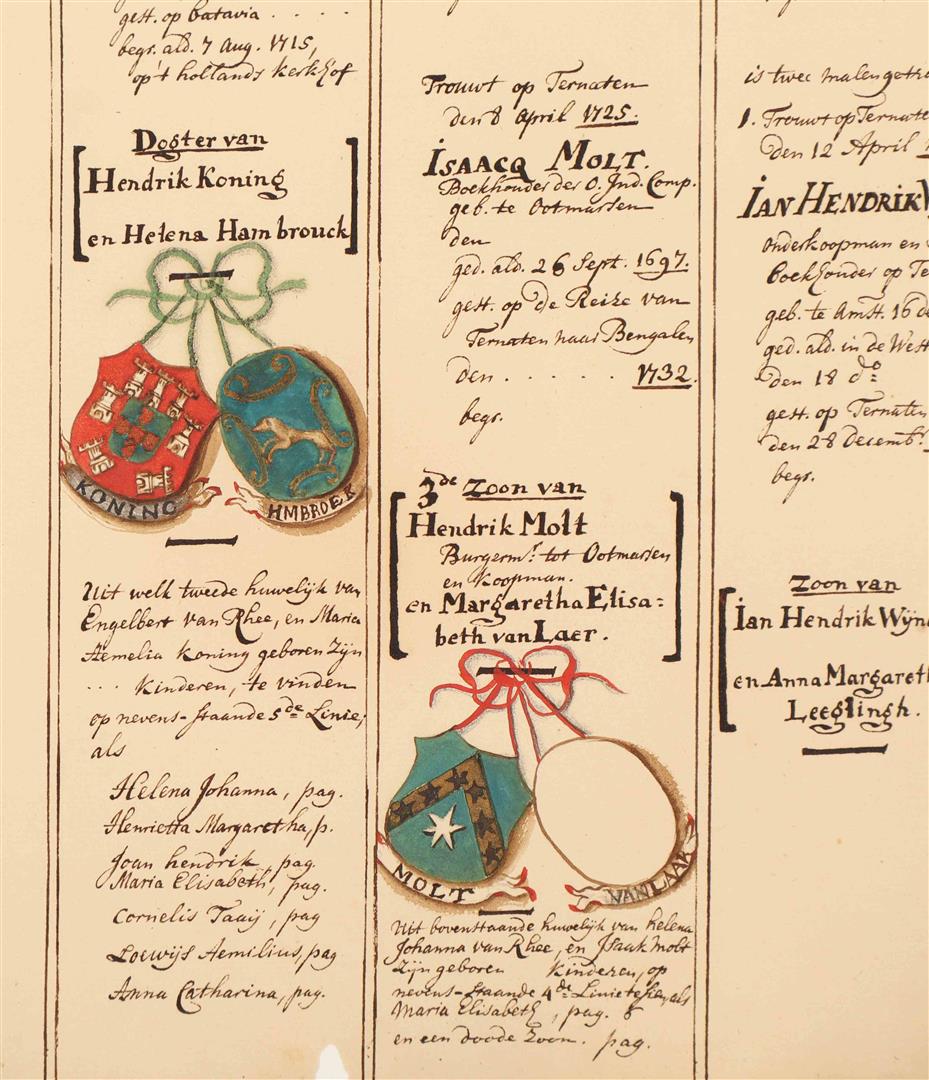 gest. op batavia . . . .
begr. ald. 7 Aug. 1715,
op't hollands kerkhof
Dogter van
Hendrik Koning
en Helena Hambrouck
KONING
HMBROEK
Uit welk tweede huwelijk van
Engelbert van Rhee, en Maria
Aemelia Koning geboren Zijn
... Kinderen, te vinden
op nevens-staande 5de Linie,
als
Helena Johanna, pag.
Henrietta Margaretha, p.
Joan hendrik, pag.
Maria Elisabeth, pag.
Cornelis Taaij, pag
Loewijs Aemilius, pag
Anna Catharina, pag.
Trouwt op Ternaten
den 8 April 1725.
ISAACQ MOLT.
Boekhouder der O. Ind. Comp.
geb. te Ootmarsen
den
ged. ald. 26 Sept. 1697.
gest. op de Reize van
Ternaten naar Bengalen
den . . . . . . 1732.
begr.
3de Zoon van
Hendrik Molt
Burgermr. tot Ootmarsen
en Koopman.
en Margaretha Elisa=
beth van Laer.
MOLT
VAN LAAR
Uit bovenstaande huwelijk van helena
Johanna van Rhee, en Isaak Molt
Zijn geboren Kinderen, op
nevens-staande 4de Linie te sien, als
Maria Elisabeth, pag. 8
en een doode Zoon. pag.
is twee malen getro
1. Trouwt op Ternate
den 12 April 1
IAN HENDRIK W
onderkoopman en
boekhouder op Te
geb. te Amst. 16 de
ged. ald. in de West
den 18 do
gest. op Ternaten
den 28 Decembr.
begr.
Zoon van
Ian Hendrik Wyn
en Anna Margaret
Leeglingh.